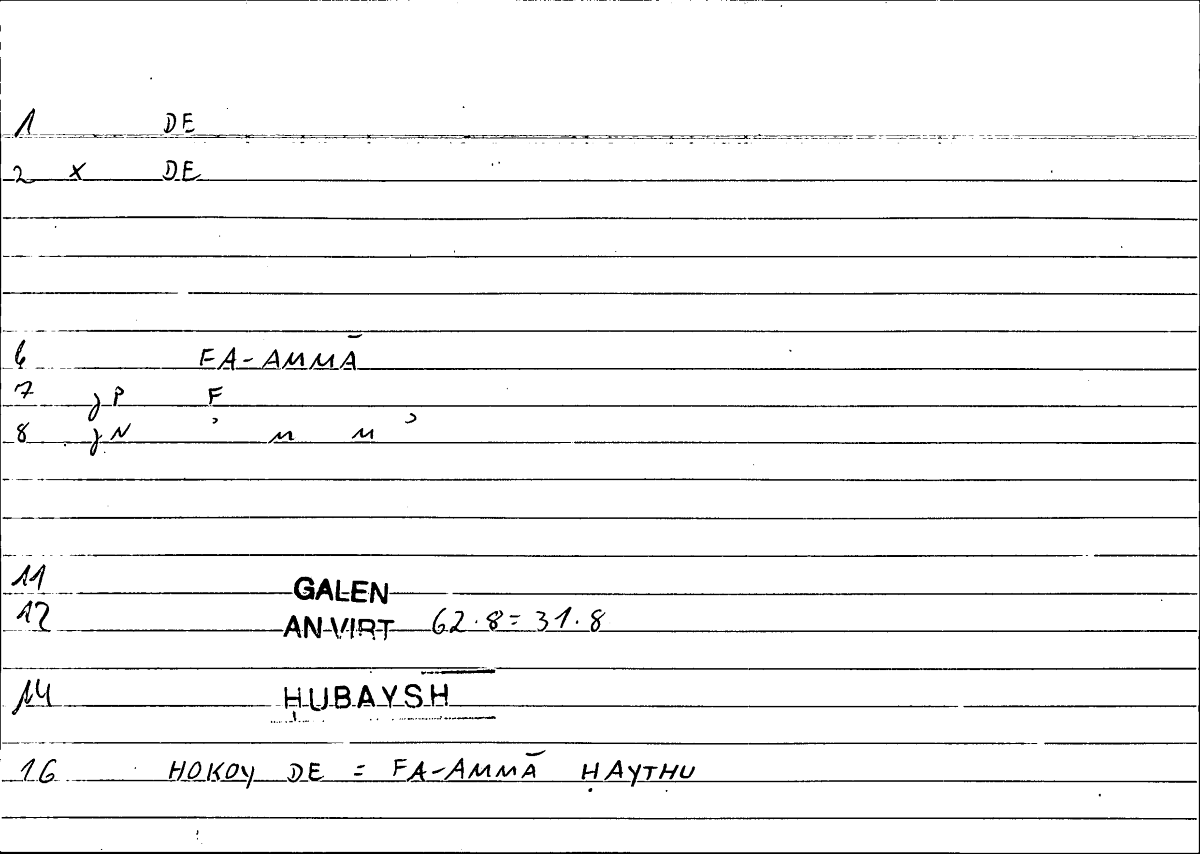 1 DE
2 x DE
6 FA-AMMĀ
7 jP F
8 jN ʾ M M ʾ
11 GALEN
12 AN.VIRT 62.8=31.8
14 ḤUBAYSH
16 HOKOY DE = FA-AMMĀ ḤAYTHU